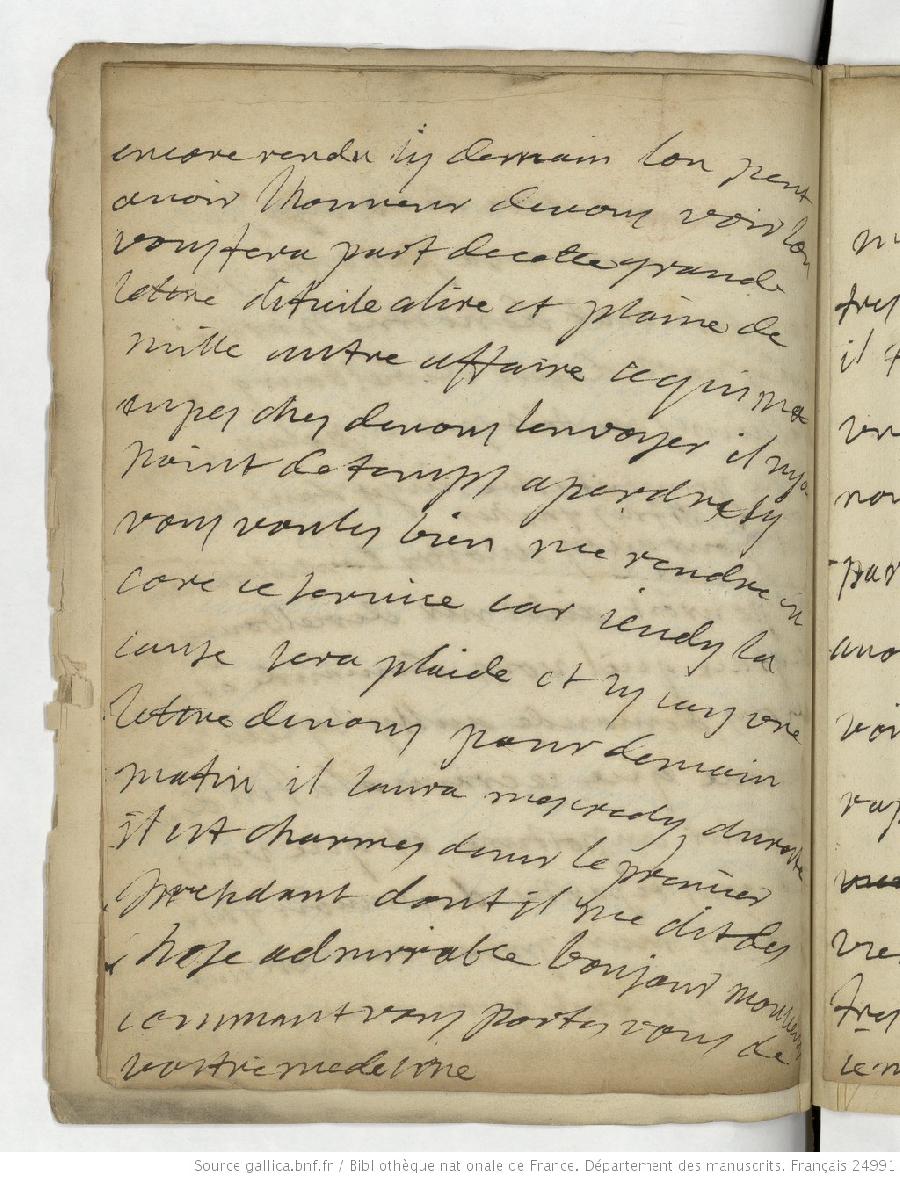 encore rendu sy demain lon peut
avoir Monsieur devous voir lon
vous fera part decette grande
lettre dificile alire et plaine de
mille autre affaire cequi ma
empeches devous lenvoyer il nya
point de temps aperdre sy
vous voules bien me rendre en
core ce service car jeudy la
cause sera plaide et sy jay vre
lettre devous pour demain
matin il laura mecredy
il est charmes davir le premier
presidant dont il me dit des
chose admirrable bonjour monsieur
commant vous portes vous de
vostre medecine
m
tres
il
vre
nou
par
avo
voi
rap
vre
tres
ce m
Source gallica.bnf.fr / Bibliothèque nationale de France. Département des manuscrits. Français 24991